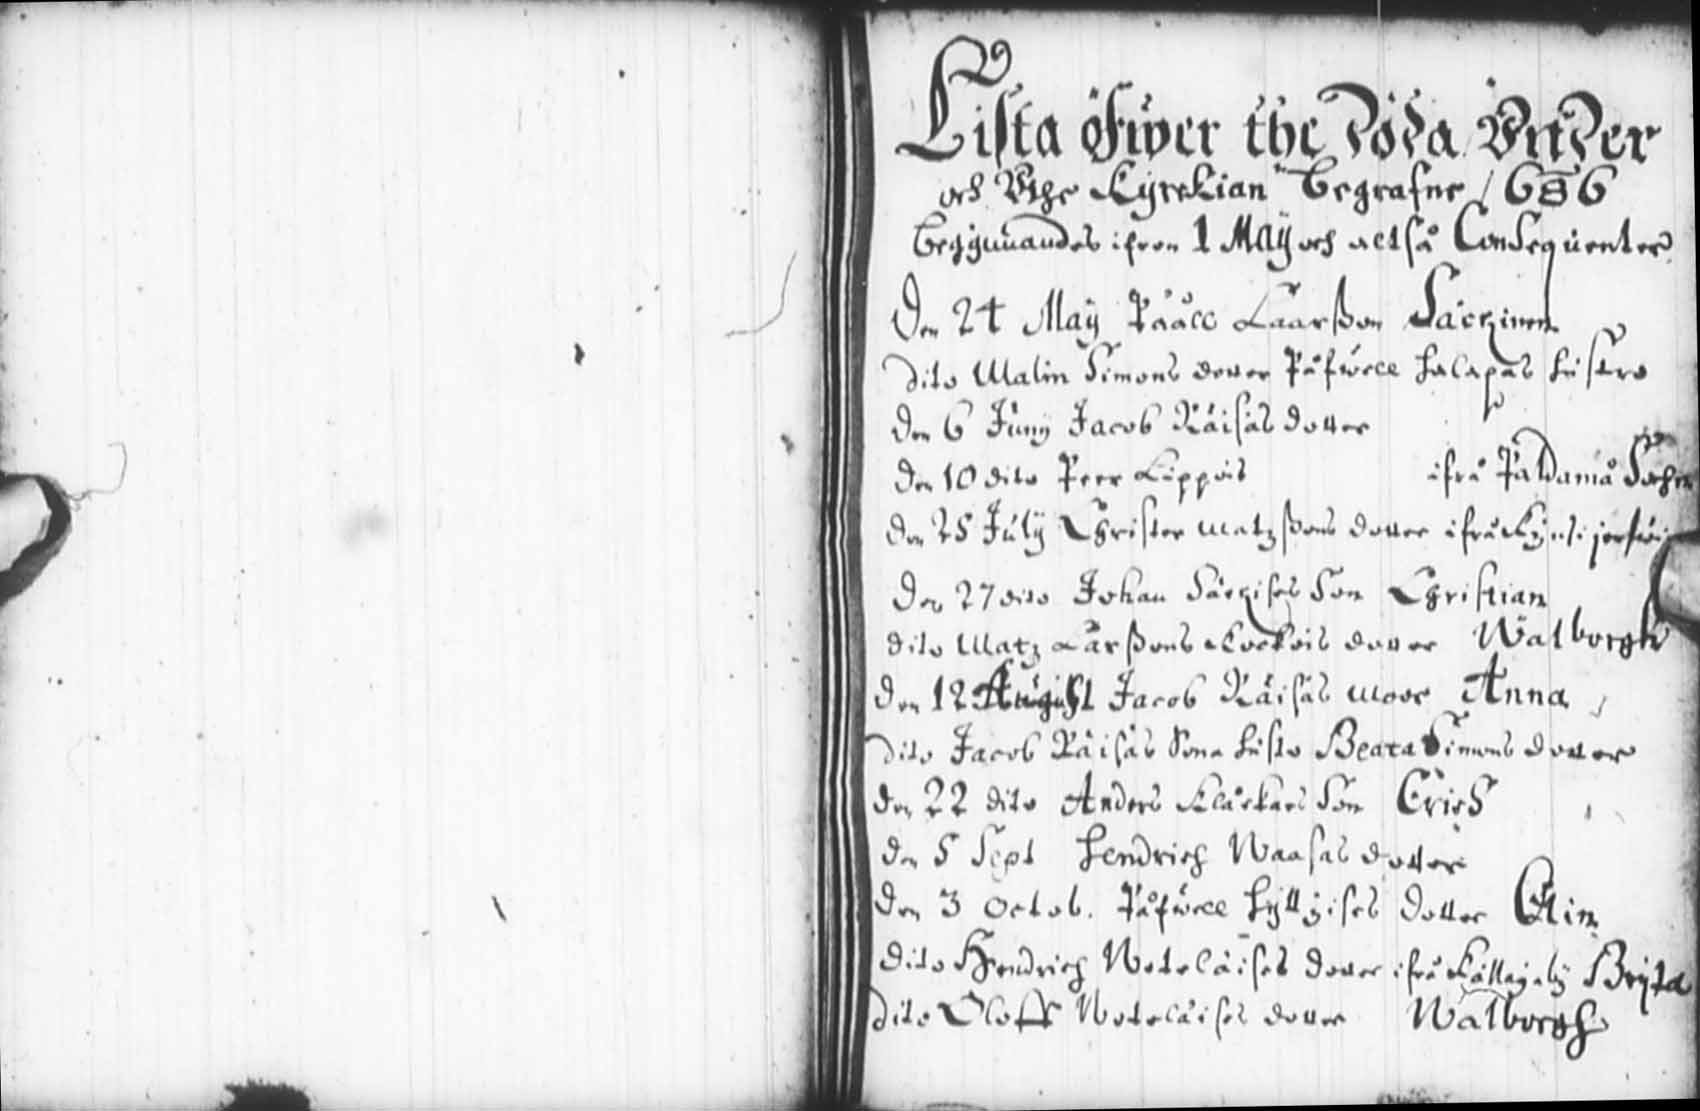 Lista öfwer the döda Vnder
och Vthe Kyrckian begrafne 1686
begÿnnandes ifron 1 Maÿ och altså Consequenter
Den 24 Maÿ Pååll Laarßon
dito Malin Simons dotter Påfwell halapas hustro
den 6 Junÿ Jacob Räisäs dotter
den 10 dito Peer Lippois ifrå Paldamå Sochn
den 25 Julÿ Christer Matzßons dotter ifrå
den 27 dito Johan Särkises Son Christian
dito Matz Larßons dotter Walborgh
den 12 August Jacob Räisäs Moor Anna
dito Jacob Räisäs Sons husto Beata Simons dotter
den 22 dito Anders Klåckars Son Erich
den 5 Sept Hendrich Waasas dotter
den 3 Octob. Påfwell dotter Elin
dito Hendrich dotter ifrå Brÿta
dito Oloff dotter Walborgh